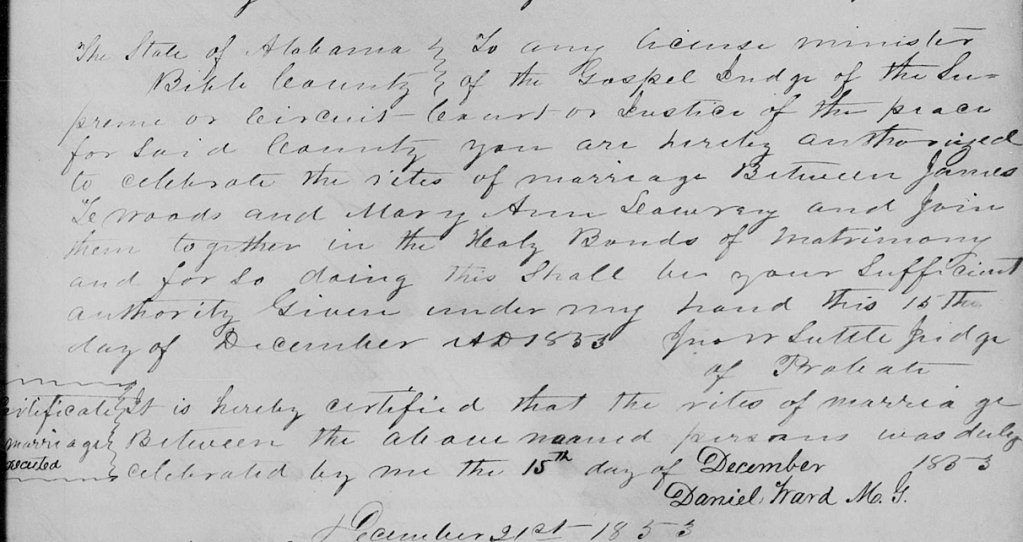 The State of Alabama } To any license minister
Bibb County } of the Gospel Judge of the Su=
preme or Circuit Court or Justice of the peace
for Said County you are hereby authorized
to celebrate the rites of marriage Between James
Woods and Mary Ann and Join
them together in the Holy Bonds of matrimony
and for so doing this Shall be your Sufficient
authority Given under my hand this 15th
day of December AD 1853 Jno W Suttle Judge
of Probate
Certificate } It is hereby certified that the rites of marriage
marriage } Between the above named persons was duly
executed } celebrated by me the 15th day of December 1853
Daniel Ward M. G.
December 21st 1853